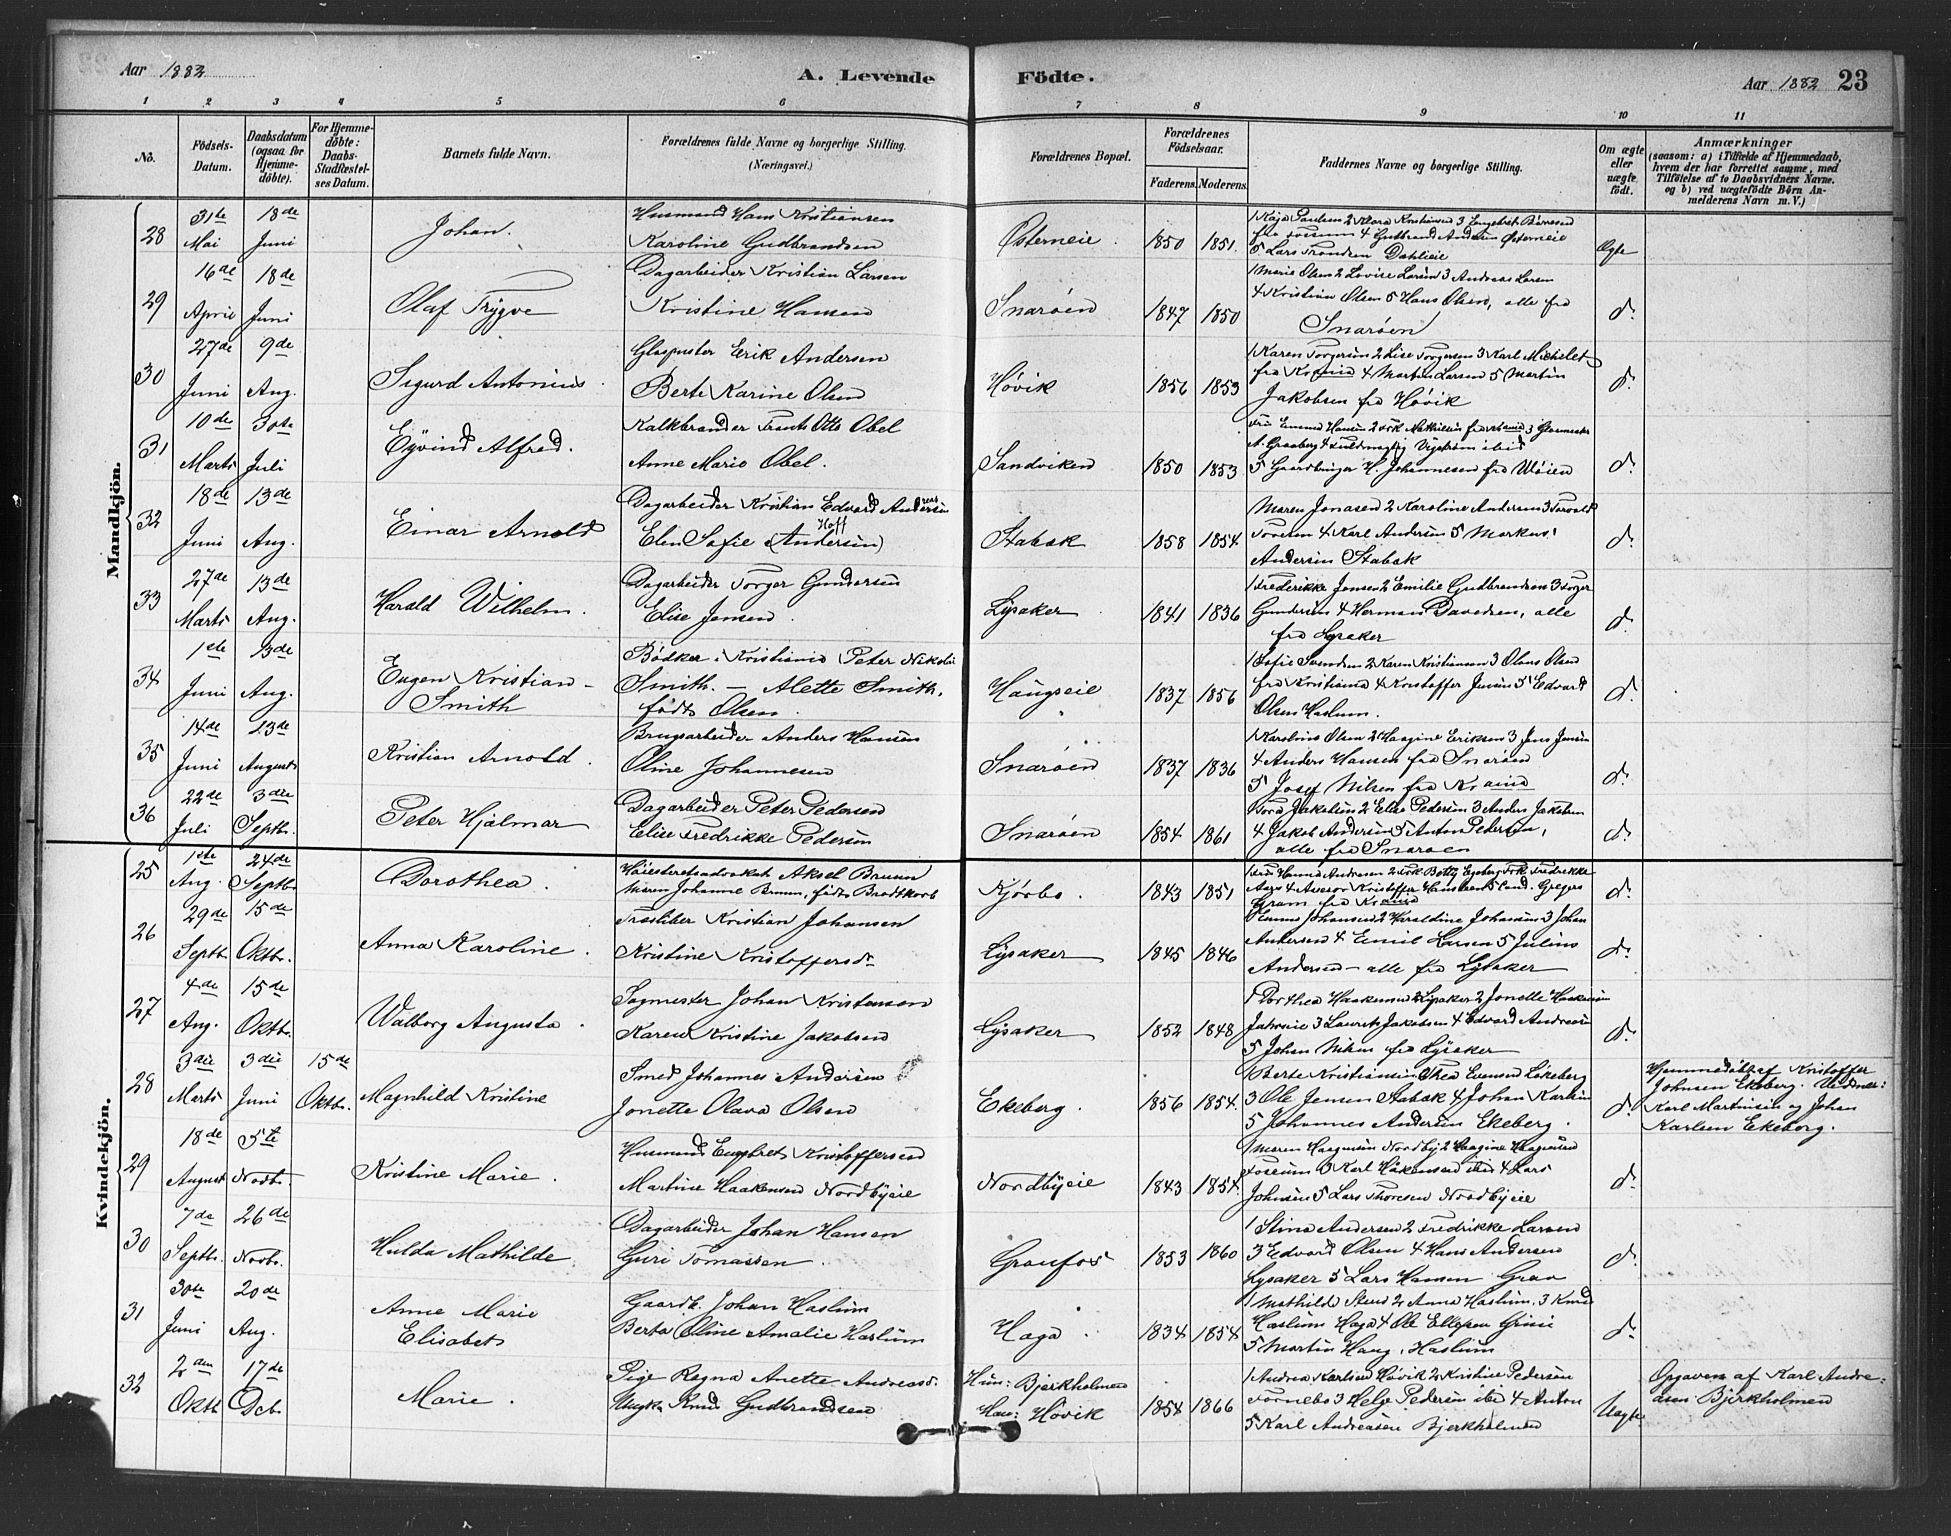 Aar 1882
A. Levende
Födte.
Aar 1882 23
1 2 3 4 5 6 7 8 9 10 11
No.
Födsels-
Datum.
Daabsdatum
(ogsaa for
Hjemme-
döbte).
For Hjemme-
döbte:
Daabs-
Stadfæstel-
ses Datum.
Barnets fulde Navn.
Forældrenes fulde Navne og borgerlige Stilling.
(Næringsvei.)
Forældrenes Bopæl.
Forældrenes
Födselsaar.
Faderens. Moderens.
Faddernes Navne og borgerlige Stilling.
Om ægte
eller
uægte
födt.
Anmærkninger
(saasom: a) i Tilfælde af Hjemmedaab,
hvem der har forrettet samme, med
Tilföielse af to Daabsvidners Navne.
og b) ved uægtefödte Børn An-
melderens Navn m. V.)
Mandkjön.
28
31te Mai
18de Juni
Johan.
Husmand Hans Kristiansen
Karoline Gudbrandsen
Østerneie
1850 1851.
1 Kaja Paulsen 2 Klara Kristiansen 3 Engebret
fra Fossum 4 Gudbrand Andersen Østerneie
5 Lars Tronsen Dahlieie
Ægte
29
16de April
18de Juni
Olaf Trygve
Dagarbeider Kristian Larsen
Kristine Hansen
Snarøen
1847 1850
1 Marie Olsen 2 Lovise Larsen 3 Andreas Larsen
4 Kristian Olsen 5 Hans Olsen, alle fra
Snarøen
do
30
27de Juni
9de Aug.
Sigurd Antonius
Glaspuster Erik Andersen
Berte Karine Olsen
Høvik
1856 1853
1 Karen Torgersen 2 Lise Torgersen 3 Karl Michelet
fra Krania 4 Martin Larsen 5 Martin
Jakobsen fra Høvik
do
31
10de Marts
30te Juli
Eyvind Alfred.
Kalkbrænder Frants Otto Obel
Anne Marie Obel.
Sandviken
1850 1853
Fru Emma Hansen 2 Frk Mathiesen fra Krania 3 Glasmester
A. Graaberg 4 Fuldmægtig ibid
5 Gaardbruger H. Johannesen fra Wøien
do
32
18de Juni
13de Aug.
Einar Arnold
Dagarbeider Kristian Edvard Andersen
Elen Sofie Hoff (Andersen)
Stabæk
1858 1854
Maren Jonasen 2 Karoline Andersen 3 Torvald
4 Karl Andersen 5 Markus
Andersen Stabæk
do
33
27de Marts
13de Aug.
Harald Wilhelm.
Dagarbeider Torger Gundersen
Elise Jensen.
Lysaker
1841 1836
1 Frederikke Jensen 2 Emilie Gudbrandsen 3 Torger
Gundersen 4 Herman Davidsen, alle
fra Lysaker
do
34
1ste Juni
13de Aug.
Eugen Kristian
Smith
Bødker i Kristiania Peter Nikolai
Smith. - Alette Smith,
födt Olsen.
Haugseie
1837 1856
1 Sofie Svendsen 2 Karen Kristiansen 3 Olaus Olsen
fra Kristiania 4 Kristoffer Jensen 5 Edvard
Olsen Haslum.
do
35
14de Juni
13de August
Kristian Arnold.
Brugsarbeider Anders Hansen
Oline Johannesen
Snarøen
1837 1836
1 Karoline Olsen 2 Haagine Eriksen 3 Jens Jensen
4 Anders Hansen fra Snarøen
5 Josef Nilsen fra Krania
do
36
22de Juli
3die Septbr.
Peter Hjalmar
Dagarbeider Peter Pedersen
Elise Fredrikke Pedersen
Snarøen
1854 1861
Tora Jakobsen 2 Elise Pedersen 3 Anders Jakobsen
4 Jakob Andersen 5 Anton Pedersen,
alle fra Snarøen
do
Kvindekjön.
25
1ste Aug.
24de Septbr.
Dorothea.
Høiesteretsadvokat Aksel Bruun
Maren Johanne Bruun, födt Brodtkorb
Kjørbo.
1843 1851
1 Fru Hanna Andresen 2 Frk Betty Egeberg Frk Fredrikke
4 Assesor Kristoffer Hanssteen 5 Cand. Greggers
Gram fra Krania
do
26
29de Septbr.
15de Oktbr.
Anna Karoline.
Træsliber Kristian Johansen
Kristine Kristoffersdr
Lysaker
1845 1846
Emma Johansen 2 Haraldine Johansen 3 Johan
Andersen 4 Emil Larsen 5 Julius
Andersen - alle fra Lysaker
do
27
4de Aug.
15de Oktbr.
Walborg Augusta.
Sagmester Johan Kristensen
Karen Kristine Jakobsen
Lysaker
1852 1848
1 Dorthea Haakensen Lysaker 2 Jonette Haakensen
3 Lauritz Jakobsen 4 Edvard Andresen
5 Johan Nilsen fra Lysaker
do
28
3die Marts
3die Juni
15de Oktbr.
Magnhild Kristine
Smed Johannes Andersen
Jonette Olava Olsen
Ekeberg.
1856 1854.
1 Berte Kristiansen 2 Thea Evensen Løkeberg
3 Ole Jensen Stabæk 4 Johan Karlsen
5 Johannes Andersen Ekeberg.
do
Hjemmedøbt af Kristoffer
Johnsen Ekeberg. Vidner:
Karl Martinsen og Johan
Karlsen Ekeberg.
29
18de August
5te Novbr.
Kristine Marie.
Husmand Engebret Kristoffersen
Martine Haakensen Nordbyeie
Nordbyeie
1843 1854.
1 Maren Haagensen Nordby 2 Haagine Haagensen
Fossum 3 Karl Håkensen ibid 4 Lars
Johnsen 5 Lars Thoresen Nordbyeie
do
30
7de Septbr.
26de Novbr.
Hulda Mathilde
Dagarbeider Johan Hansen
Guri Tomassen.
Granfos
1853 1860
1 Stina Andersen 2 Fredrikke Larsen
3 Edvard Olsen 4 Hans Andersen
Lysaker 5 Lars Hansen Grav
do
31
30te Juni
20de Aug.
Anne Marie
Elisabet
Gaardb. Johan Haslum
Berta Oline Amalie Haslum
Haga.
1834 1854
1 Mathilde Steen 2 Anna Haslum, 3 Knud
Haslum Haga 4 Ole Ellefsen Grinie
5 Martin Haug, Haslum
do
32
2den Oktb
17de Dcb.
Marie.
Pige Ragna Anette Andreasdr
Ungk. Knud Gudbrandsen
Hun: Bjerkholmen
Han: Høvik
1854 1866
1 Andrea Karlsen Høvik 2 Kristine Pedersen
Fornebo 3 Helge Pedersen ibid 4 Anton
5 Karl Andreasen Bjerkholmen
Uægte
Opgaven af Karl Andrea-
sen Bjerkholmen